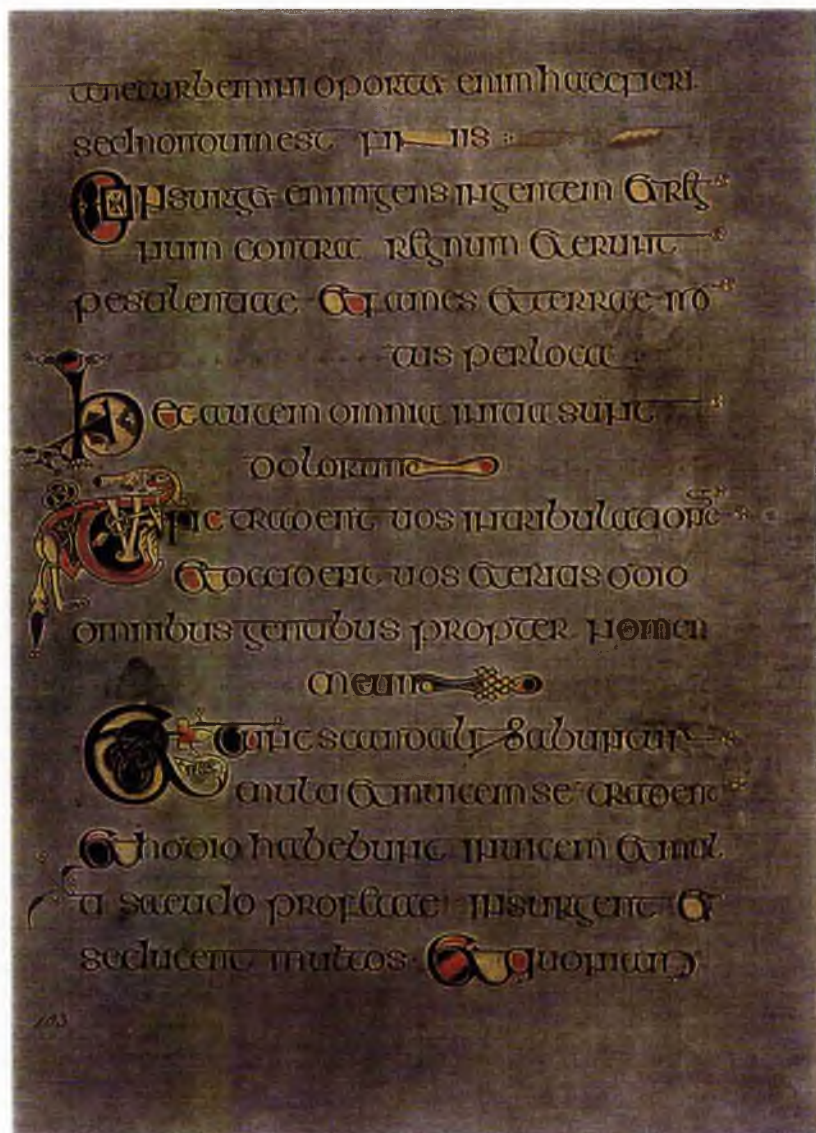 ne turbemini oportet enim haec fieri
sed nondum est finis
Consurget enim gens in gentem et reg
num contra regnum et erunt
pestilentiae et fames et terrae mo
tus per loca
hec autem omnia initia sunt
dolorum
Tunc tradent uos in tribulatione
et occident uos et eritis odio
omnibus gentibus propter nomen
meum
Et tunc scandalizabuntur
multi et inuicem se tradent
et hodio habebunt inuicem et mul
ti seudo profetae insurgent et
seducent multos et quoniam
103